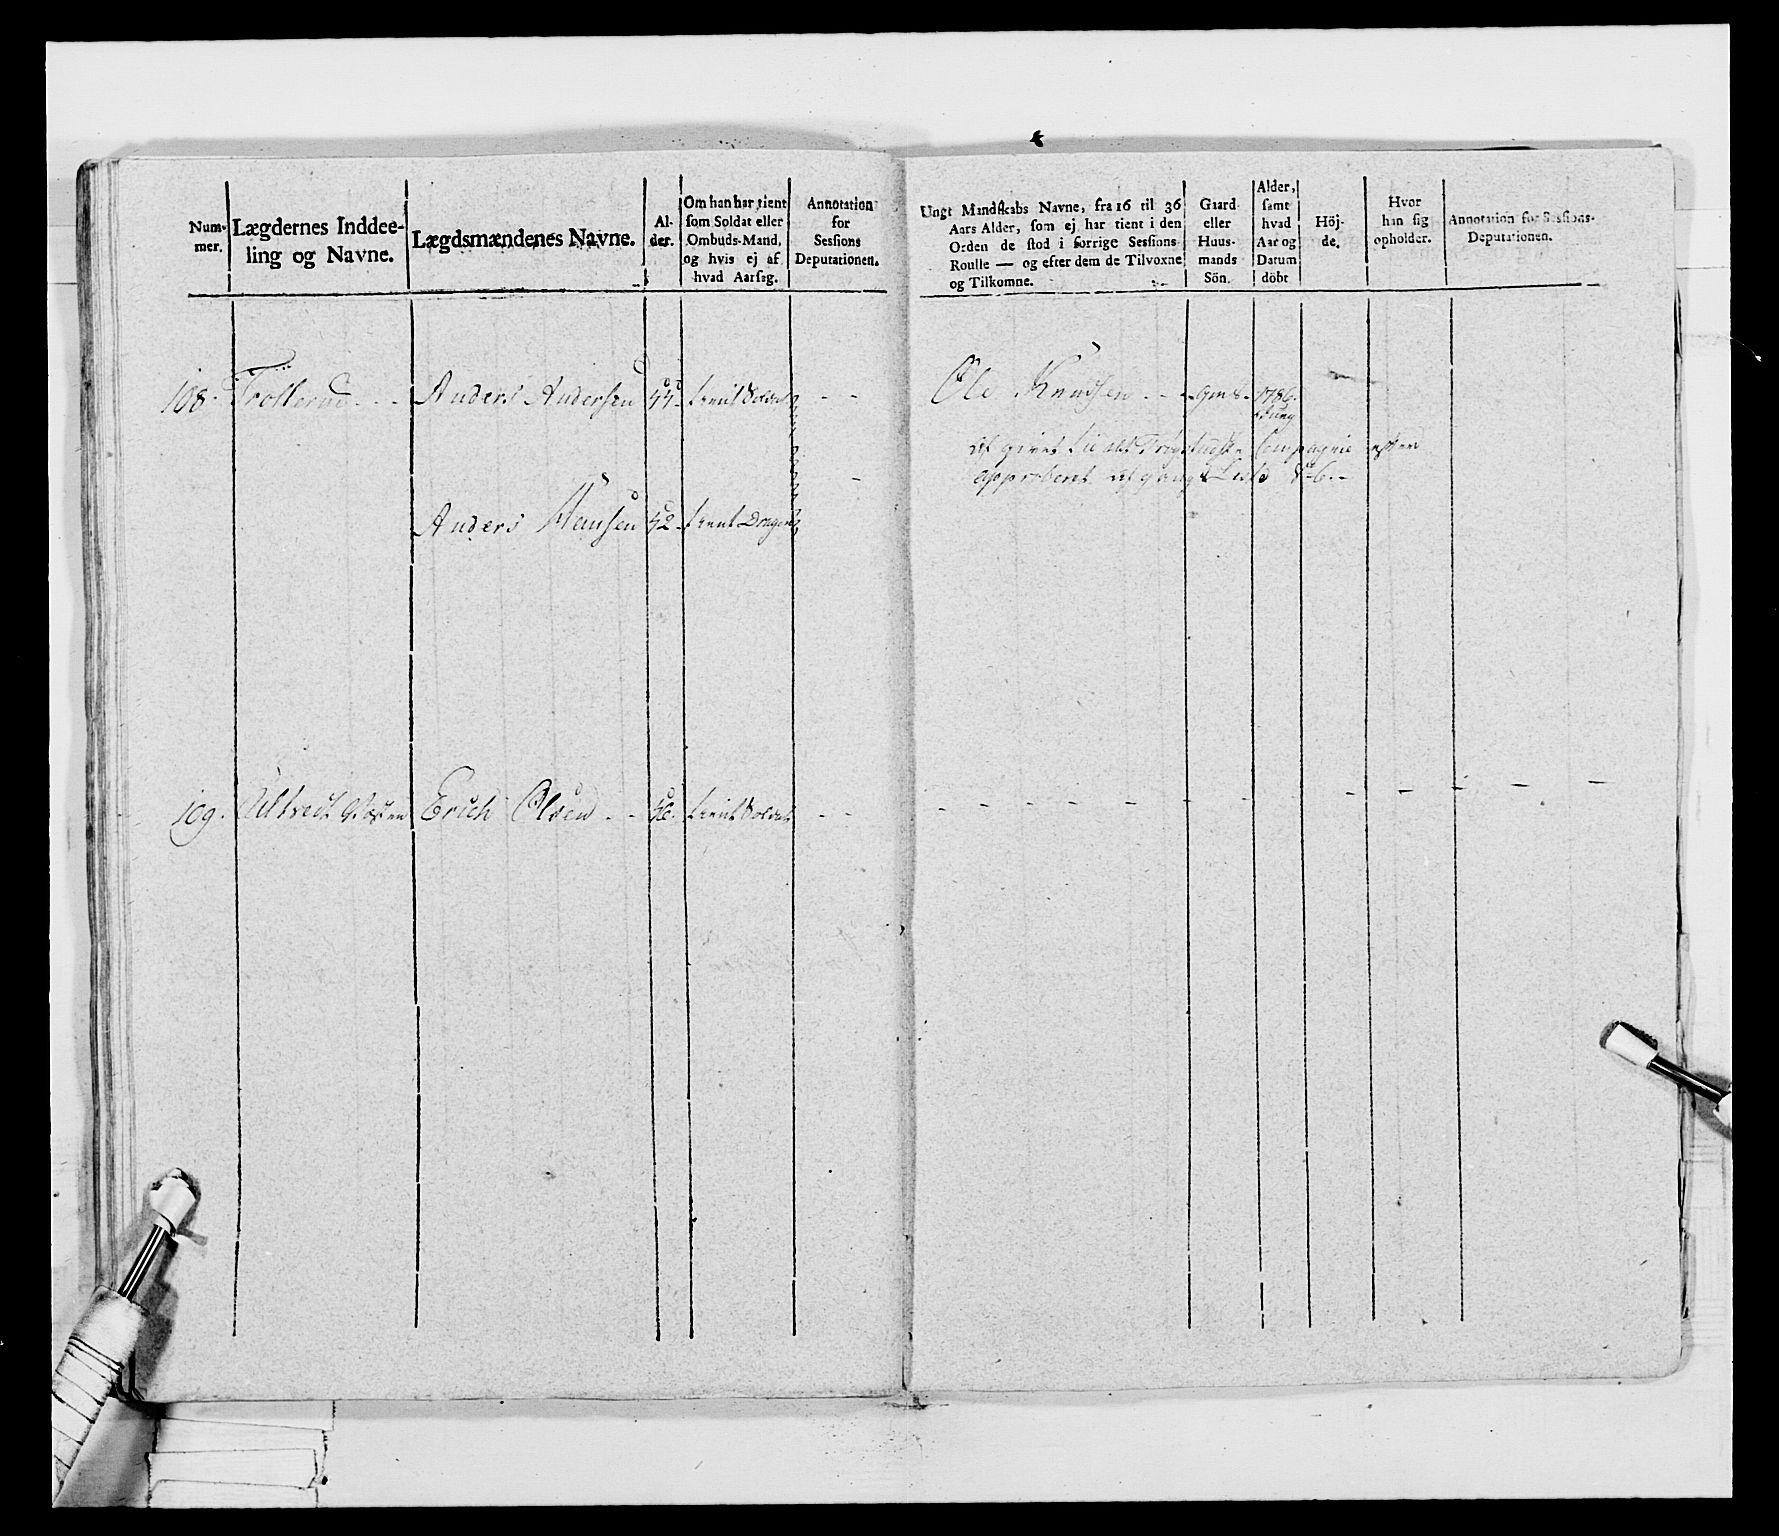 Num-
mer.
Lægdernes Inddee-
ling og Navne.
Lægdsmændenes Navne.
Al-
der.
Om han har tient
som Soldat eller
Ombuds-Mand,
og hvis ej af
hvad Aarsag.
Annotation
for
Sessions
Deputationen.
Ungt Mandskabs Navne, fra 16 til 36
Aars Alder, som ej har tient i den
Orden de stod i forrige Sessions-
Roulle — og efter dem de Tilvoxne
og Tilkomne.
Gaard
eller
Huus-
mands
Sön.
Alder,
samt
hvad
Aar og
Datum
döbt
Höj-
de.
Hvor
han sig
opholder.
Annotation for Sessions-
Deputationen.
108. Trollerud - - Anders Andersen 44 - tient Soldat - -
Ole Knudsen - - gms - 1786.
af givet til det Trögstadske Compagnie efter
approberet afgangs Liste
Anders Hansen 42 - tient Dragon -
109. Erich Olsen - - tient Soldat - -